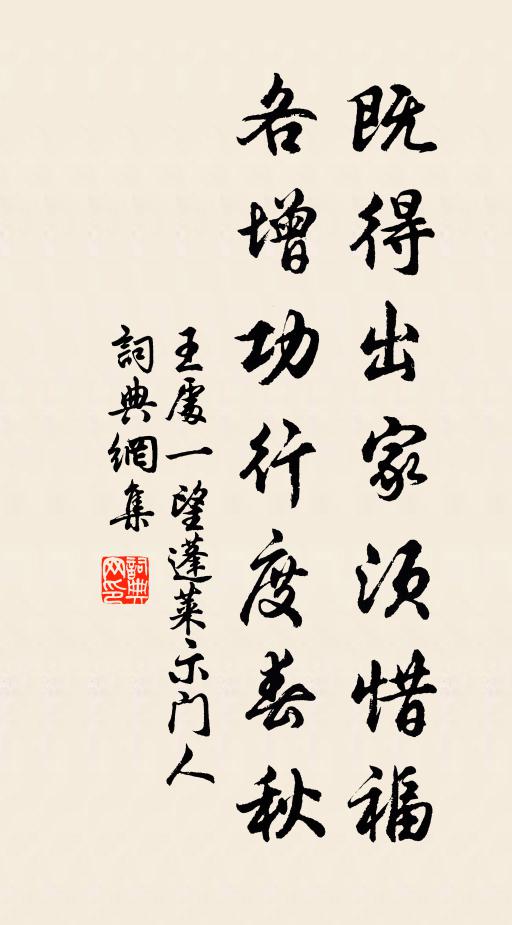 既得出家须惜福
各增功行度春秋
王處一望蓬莱示门人
詞典網集
詞典网印